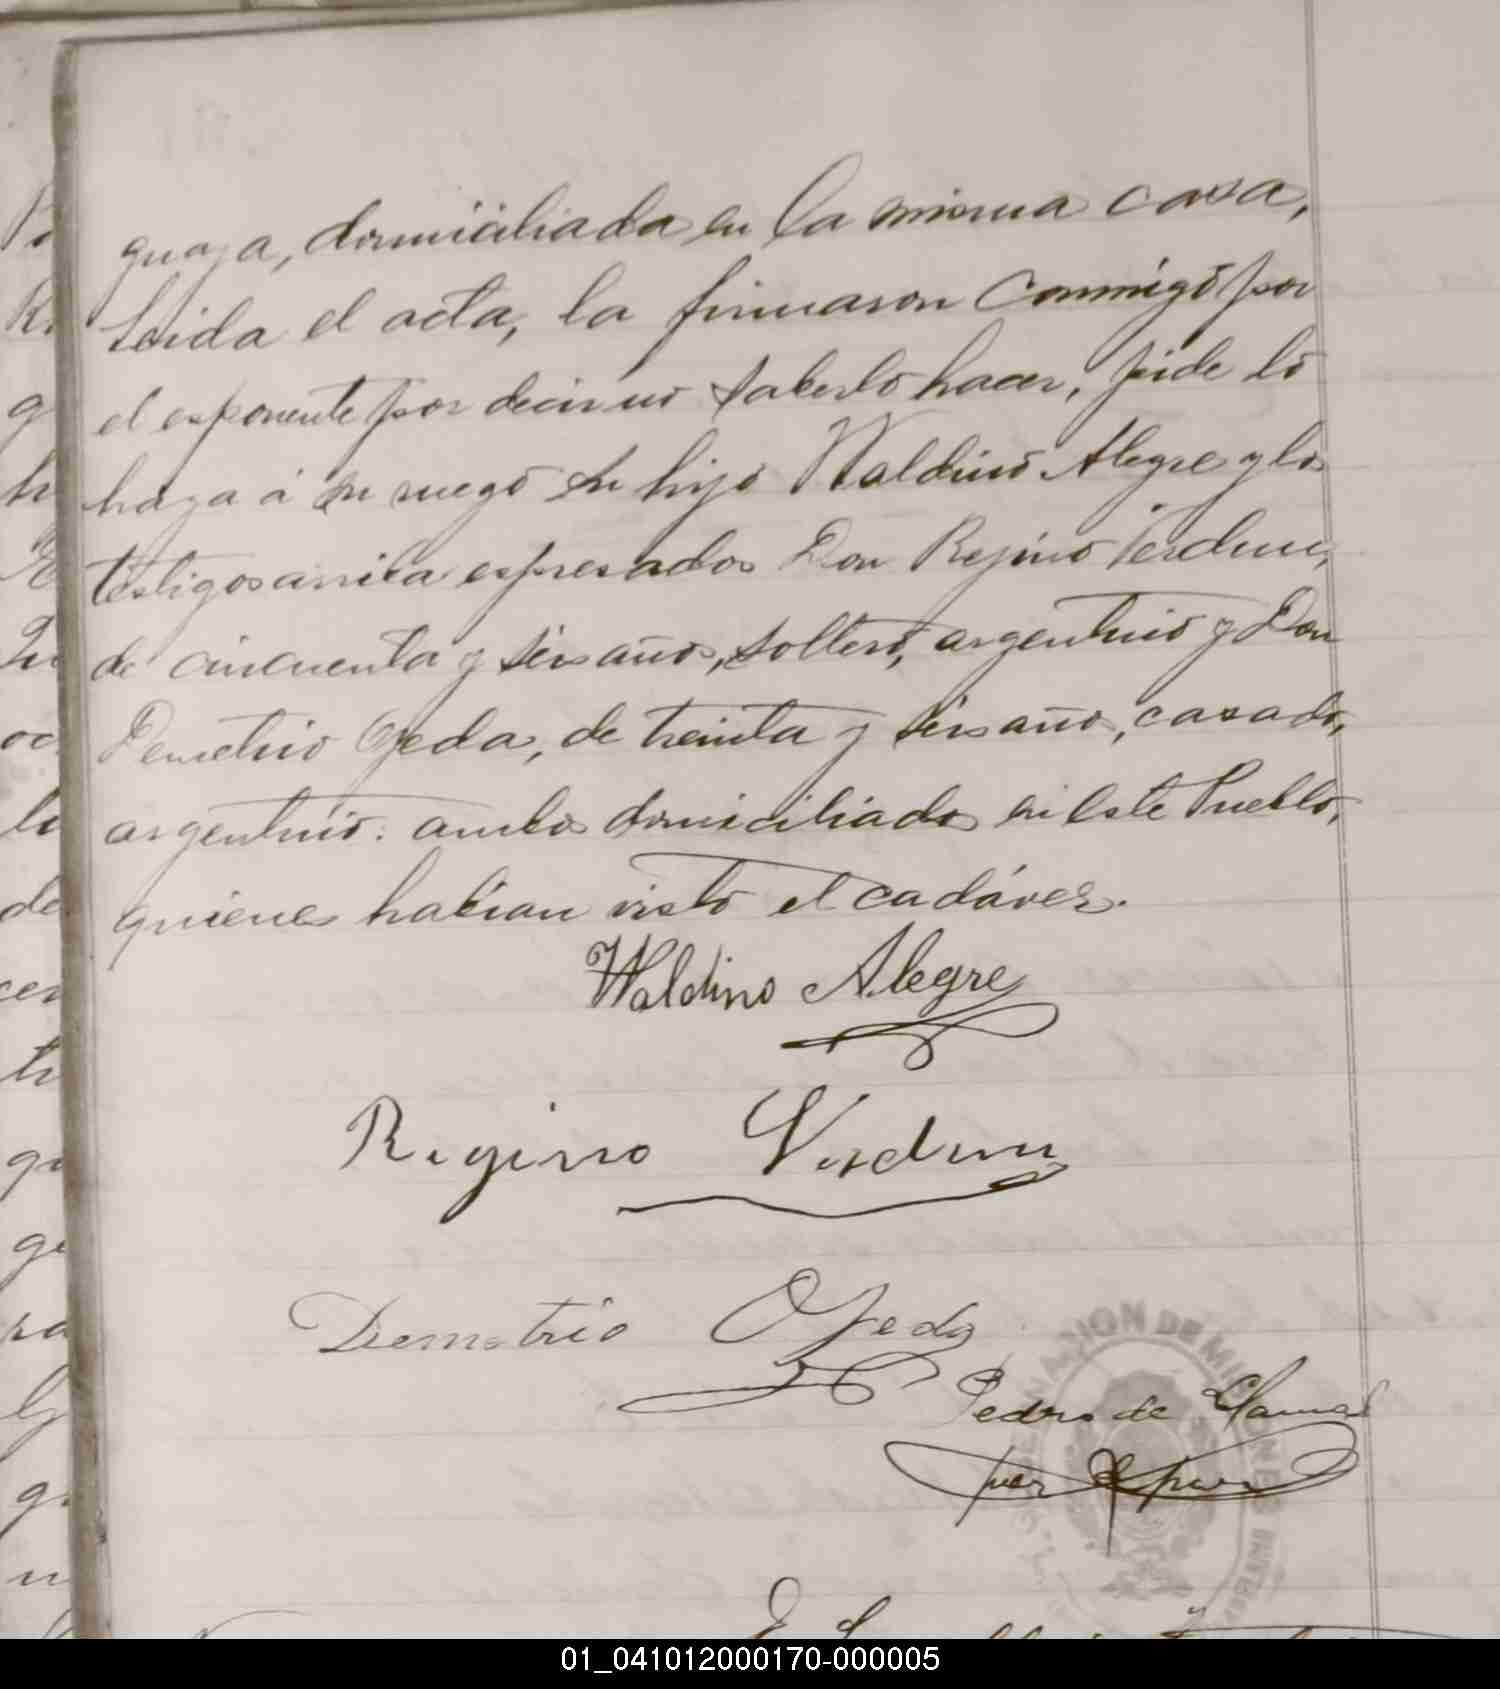 guaya, domiciliada en la misma casa,
Leida el acta, la firmaron conmigo por
el esponente por decir no saberlo hacer, pide lo
haga á su ruego su hijo Waldino Alegre y los
testigos arriba espresados Don Rejino Verdun,
de cincuenta y seis años, soltero, argentino y Don
Demetrio Ojeda, de treinta y seis años, casado,
argentino: ambos domiciliados en este Pueblo,
quienes habian visto el cadáver.
Waldino Alegre
Regino Verdun
Demetrio Ojeda
Pedro de Llamas
Juez de paz
NACION DE MISIONES
01_041012000170-000005